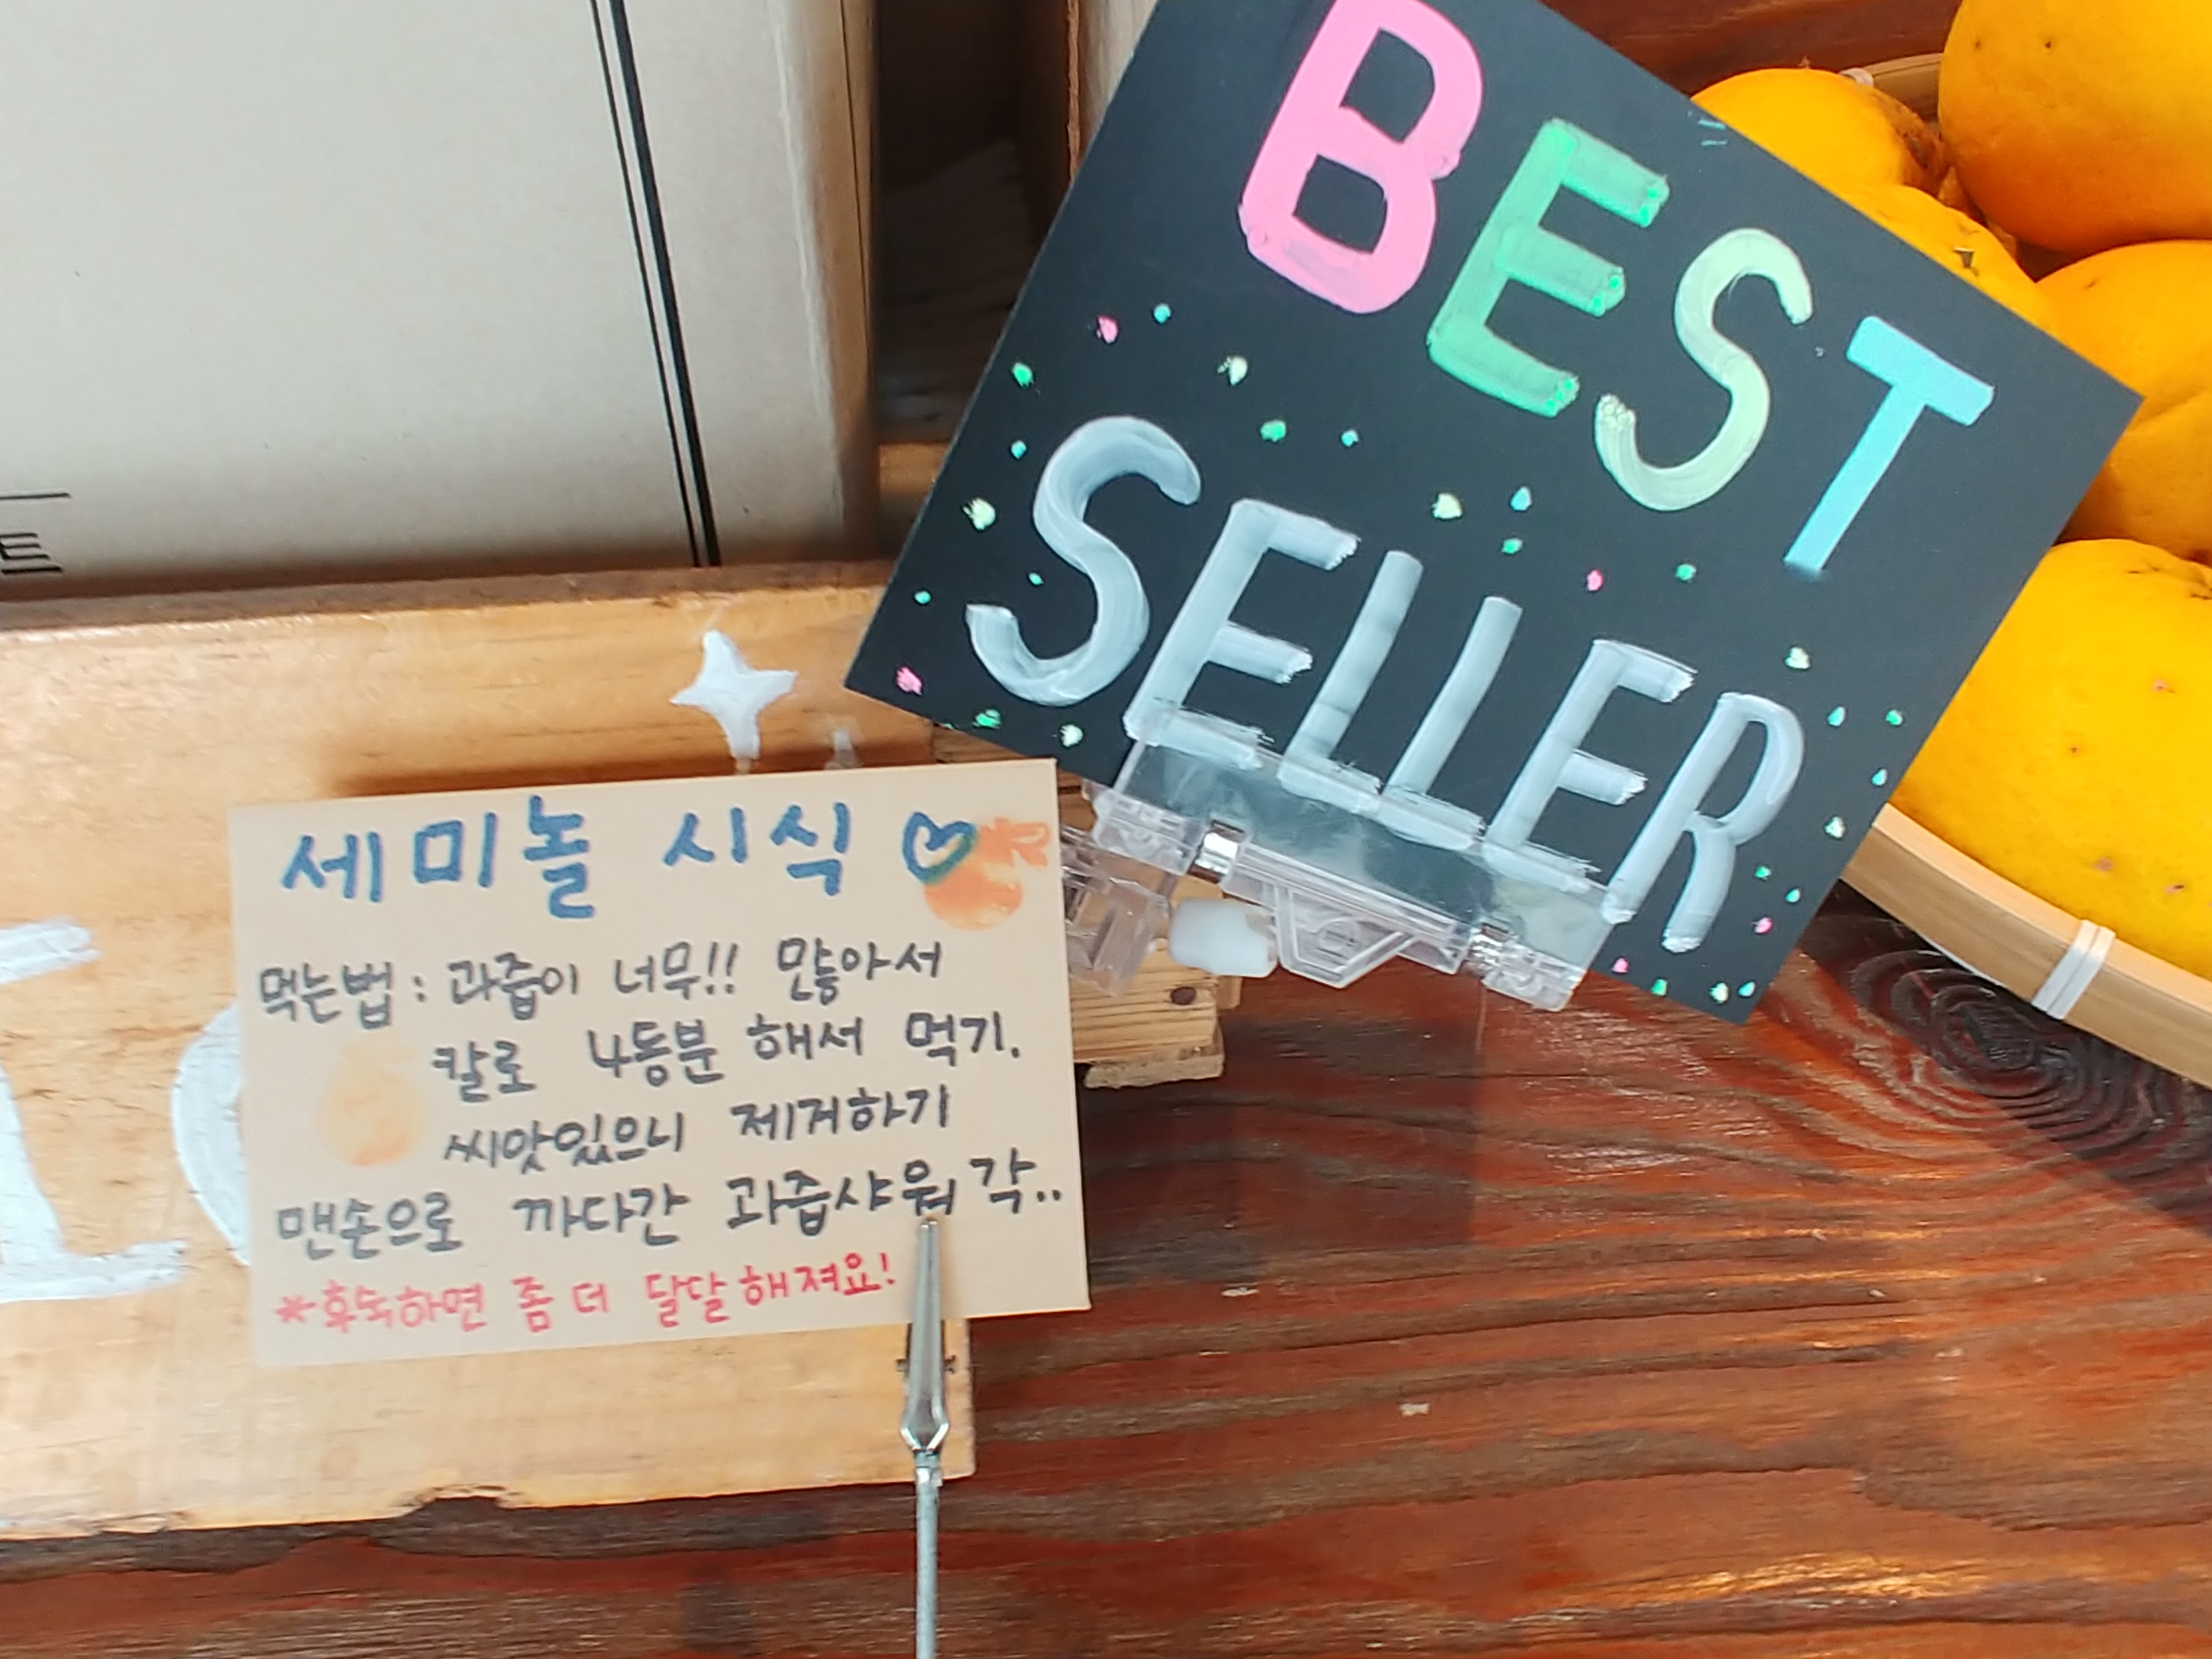 BEST
SELLER
세미놀 시식
먹는법 : 과즙이 너무!! 많아서
칼로 4등분 해서 먹기.
씨앗있으니 제거하기
맨손으로 까다간 과즙샤워각..
*후숙하면 좀 더 달달해져요!